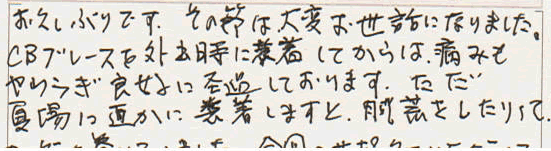 お久しぶりです。その節は大変お世話になりました。
CBブレースを外出時に装着してからは、痛みも
やわらぎ良好に経過しております。ただ
夏場に直かに装着しますと、脱着をしたりして